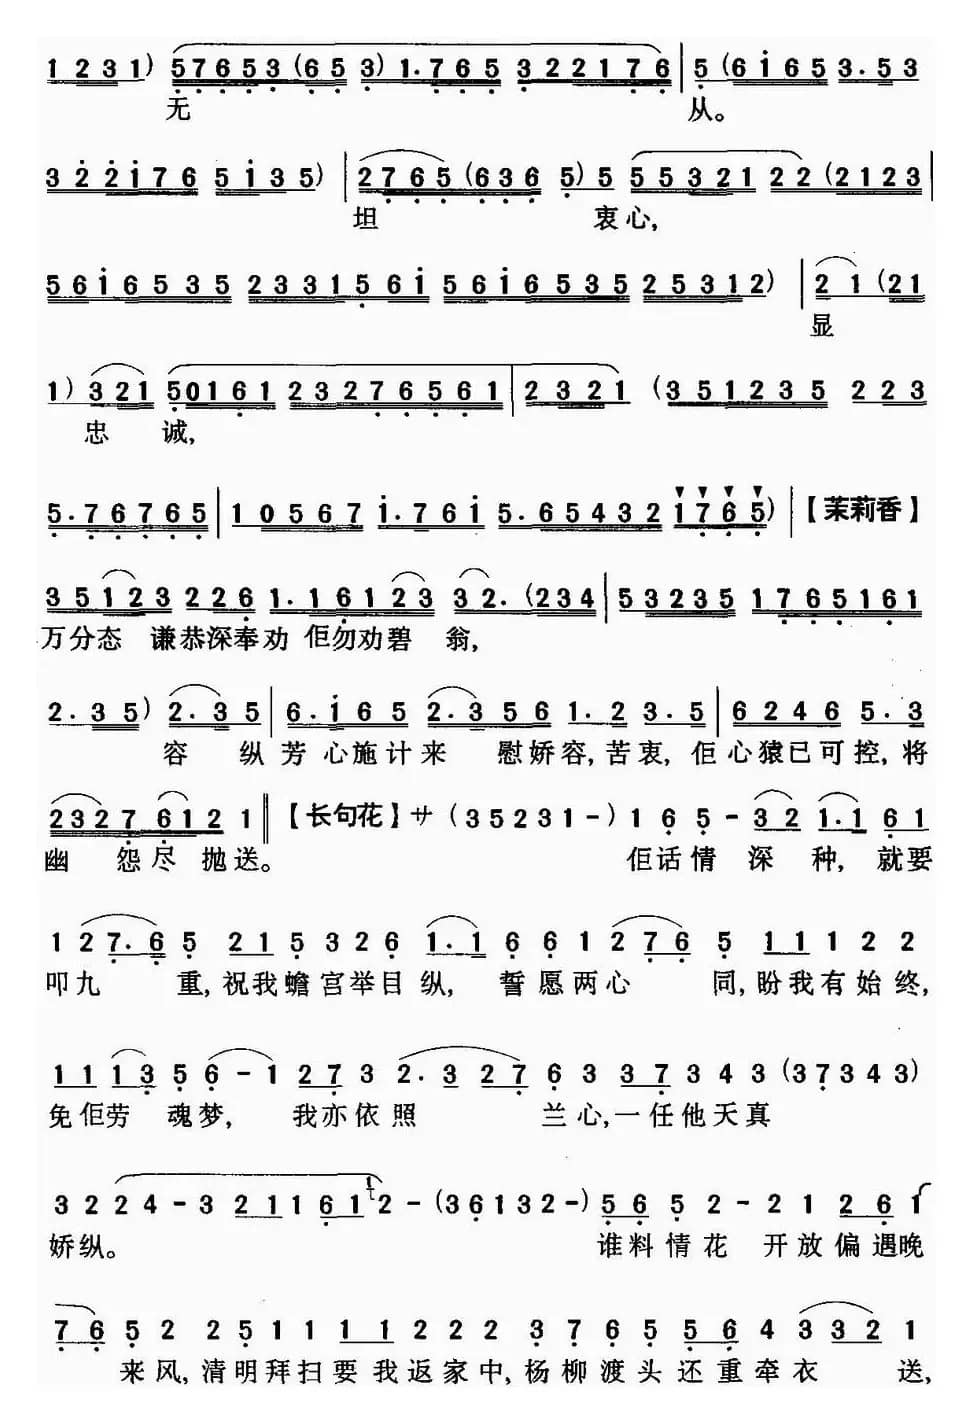 1 2 3 1) 5 7 6 5 3 (6 5 3) 1. 7 6 5 3 2 2 1 7 6 | 5 (6 i 6 5 3. 5 3
无 从。
3 2 2 i 7 6 5 i 3 5) | 2 7 6 5 (6 3 6 5) 5 5 5 3 2 1 2 2 (2 1 2 3 |
坦 衷心,
5 6 i 6 5 3 5 2 3 3 1 5 6 i 5 6 i 6 5 3 5 2 5 3 1 2) | 2 1 (2 1
显
1) 3 2 1 5 0 1 6 1 2 3 2 7 6 5 6 1 | 2 3 2 1 (3 5 1 2 3 5 2 2 3
忠 诚,
5. 7 6 7 6 5 | 1 0 5 6 7 i. 7 6 i 5. 6 5 4 3 2 1 7 6 5) | 【茉莉香】
3 5 1 2 3 2 2 6 1. 1 6 1 2 3 3 2. (2 3 4 | 5 3 2 3 5 1 7 6 5 1 6 1
万分态 谦恭深奉劝 佢勿劝碧 翁,
2. 3 5) 2. 3 5 | 6. i 6 5 2. 3 5 6 1. 2 3. 5 | 6 2 4 6 5. 3
容 纵芳心施计来 慰娇容,苦衷,佢心猿已可控,将
2 3 2 7 6 1 2 1 ‖ 【长句花】サ (3 5 2 3 1 -) 1 6 5 - 3 2 1. 1 6 1
幽 怨尽 抛送。 佢话情 深 种, 就要
1 2 7. 6 5 2 1 5 3 2 6 1. 1 6 6 1 2 7 6 5 1 1 1 2 2
叩九 重,祝我蟾宫举目纵, 誓愿两心 同,盼我有始终,
1 1 1 3 5 6 - 1 2 7 3 2. 3 2 7 6 3 3 7 3 4 3 (3 7 3 4 3)
免佢劳 魂梦, 我亦依照 兰心,一任他天真
3 2 2 4 - 3 2 1 1 6 1 1 2 - (3 6 1 3 2 -) 5 6 5 2 - 2 1 2 6 1
娇纵。 谁料情花 开放偏遇晚
7 6 5 2 2 5 1 1 1 1 2 2 2 3 7 6 5 5 6 4 3 3 2 1
来风,清明拜扫要我返家中,杨柳渡头还重牵衣 送,